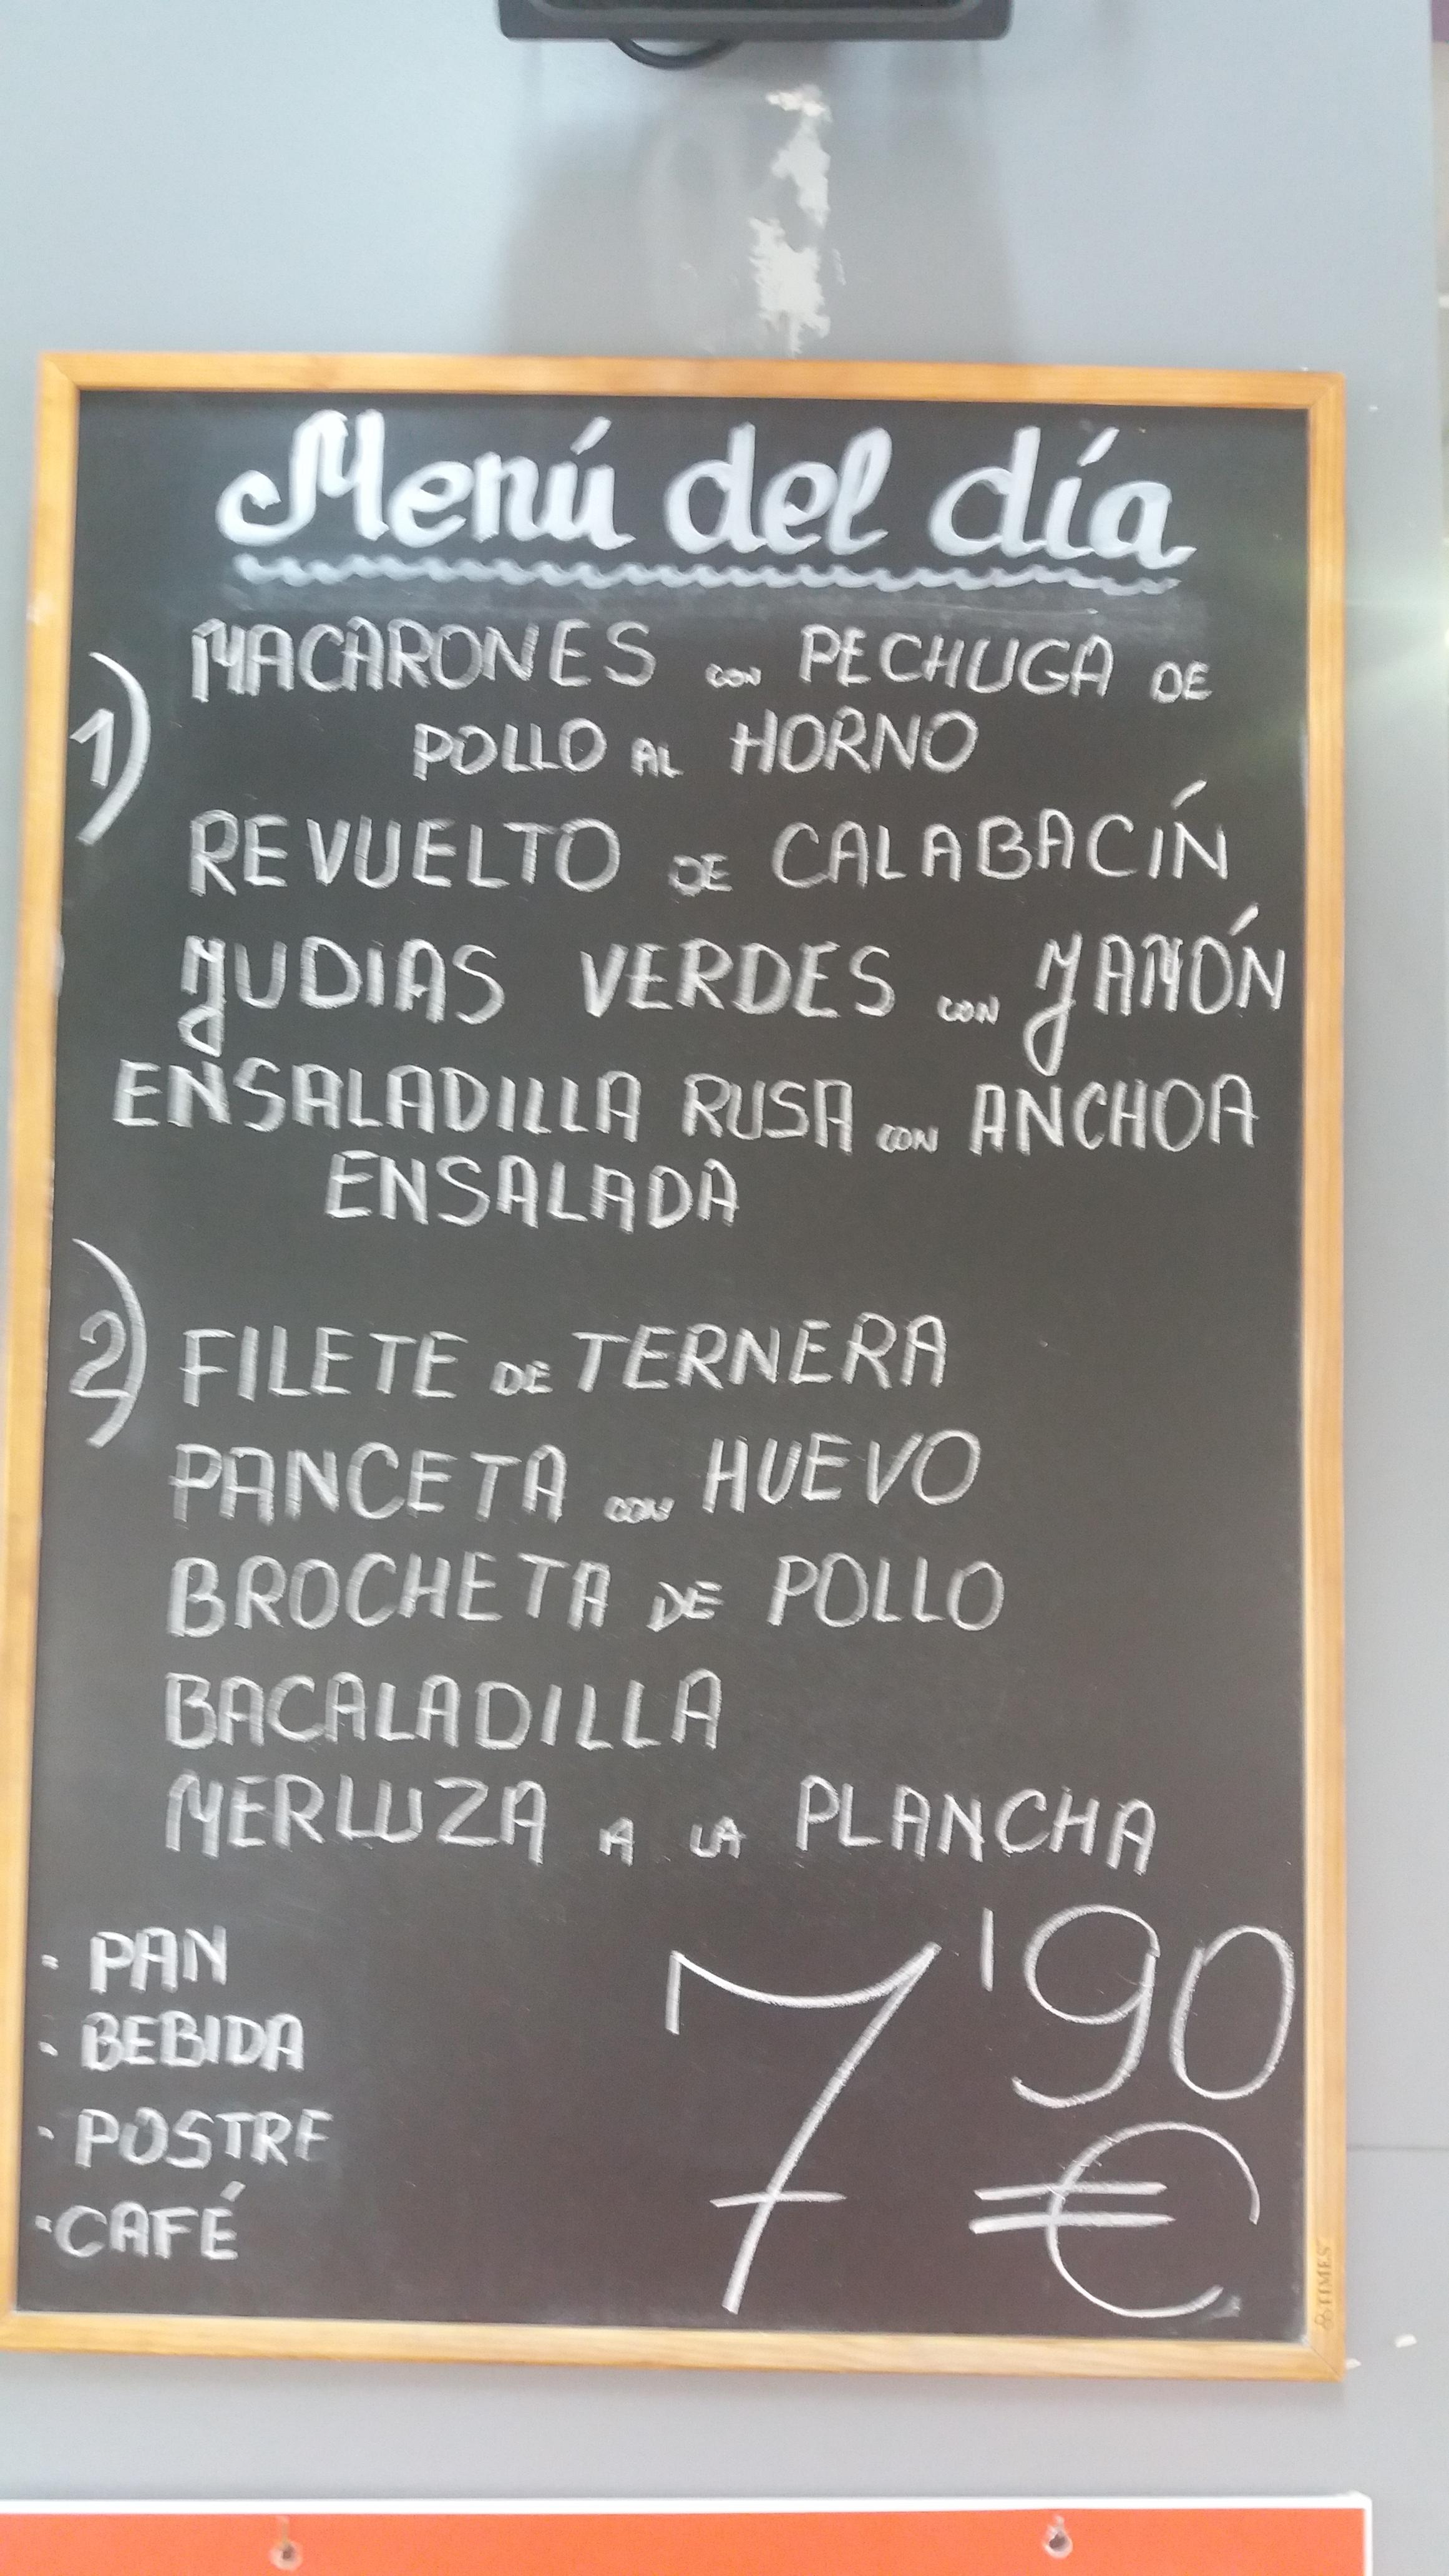 Menú del día
1) MACARONES CON PECHUGA DE
POLLO AL HORNO
REVUELTO DE CALABACÍN
JUDIAS VERDES CON JAMÓN
ENSALADILLA RUSA CON ANCHOA
ENSALADA
2) FILETE DE TERNERA
PANCETA CON HUEVO
BROCHETA DE POLLO
BACALADILLA
MERLUZA A LA PLANCHA
· PAN
· BEBIDA
· POSTRE
· CAFÉ
7'90
€
TIMES